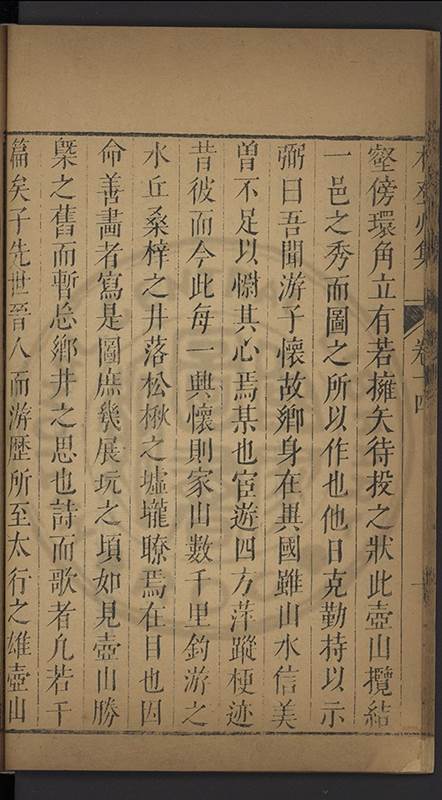 卷十四
壑傍環角立有若擁矢待投之狀此壺山攬結
一邑之秀而圖之所以作也他日克勤持以示
弼曰吾聞游子懷故鄉身在異國雖山水信美
曾不足以慰其心焉某也宦遊四方萍蹤梗迹
昔彼而今此每一興懷則家山數千里釣游之
水丘桑梓之井落松楸之墟壠瞭焉在目也因
命善畵者寫是圖庶幾展玩之頃如見壺山勝
槩之舊而暫忘鄉井之思也詩而歌者凡若干
篇矣子先世晉人而游歷所至太行之雄壺山